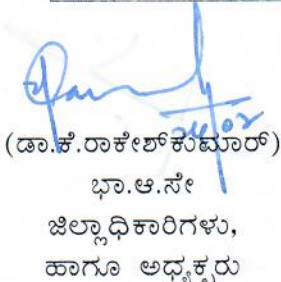 (ಡಾ.ಕೆ.ರಾಕೇಶ್‌ಕುಮಾರ್)
ಭಾ.ಆ.ಸೇ
ಜಿಲ್ಲಾಧಿಕಾರಿಗಳು,
ಹಾಗೂ ಅಧ್ಯಕ್ಷರು